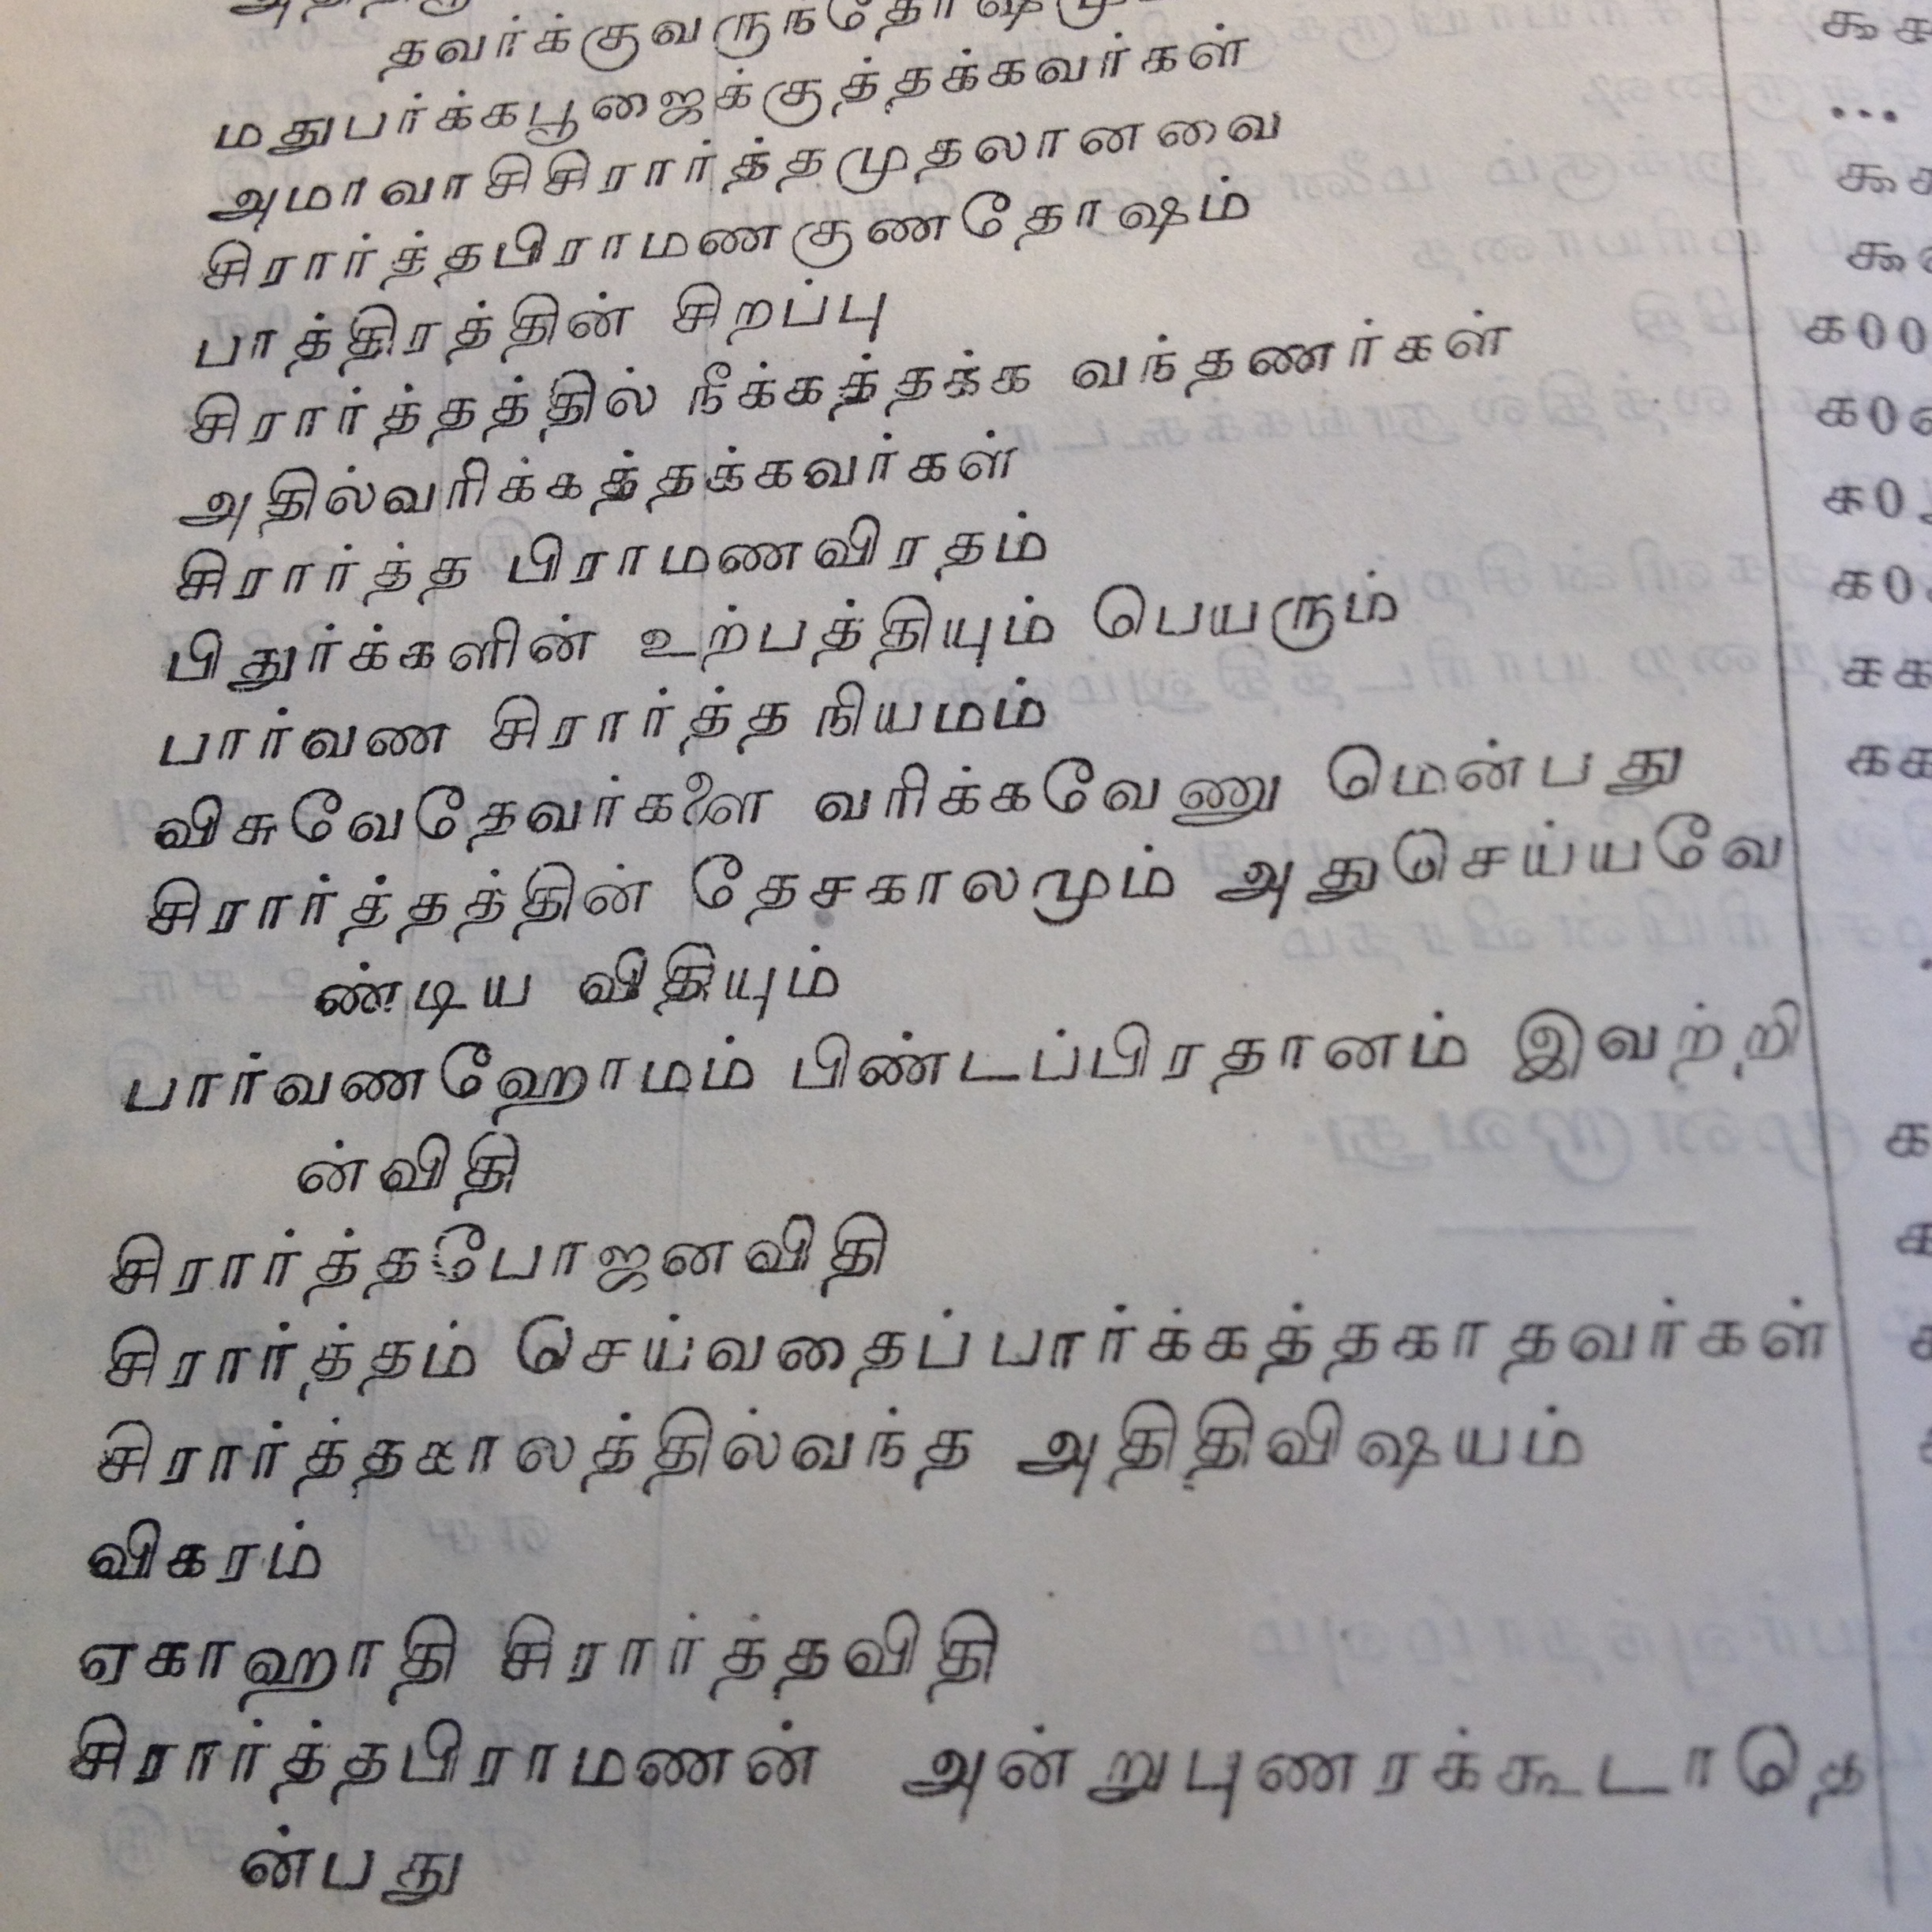 தவர்க்குவருந்தோஷமு
மதுபர்க்கபூஜைக்குத்தக்கவர்கள்
அமாவாசிசிரார்த்தமுதலானவை
சிரார்த்தபிராமணகுணதோஷம்
பாத்திரத்தின் சிறப்பு
க00
சிரார்த்தத்தில் நீக்கத்தக்க வந்தணர்கள்
அதில்வரிக்கத்தக்கவர்கள்
சிரார்த்த பிராமணவிரதம்
பிதுர்க்களின் உற்பத்தியும் பெயரும்
பார்வண சிரார்த்த நியமம்
விசுவேதேவர்களை வரிக்கவேணு மென்பது
சிரார்த்தத்தின் தேசகாலமும் அதுசெய்யவே
ண்டிய விதியும்
பார்வணஹோமம் பிண்டப்பிரதானம் இவற்றி
ன்விதி
சிரார்த்தபோஜனவிதி
சிரார்த்தம் செய்வதைப்பார்க்கத்தகாதவர்கள்
சிரார்த்தகாலத்தில்வந்த அதிதிவிஷயம்
விகரம்
ஏகாஹாதி சிரார்த்தவிதி
சிரார்த்தபிராமணன் அன்றுபுணரக்கூடாதெ
ன்பது